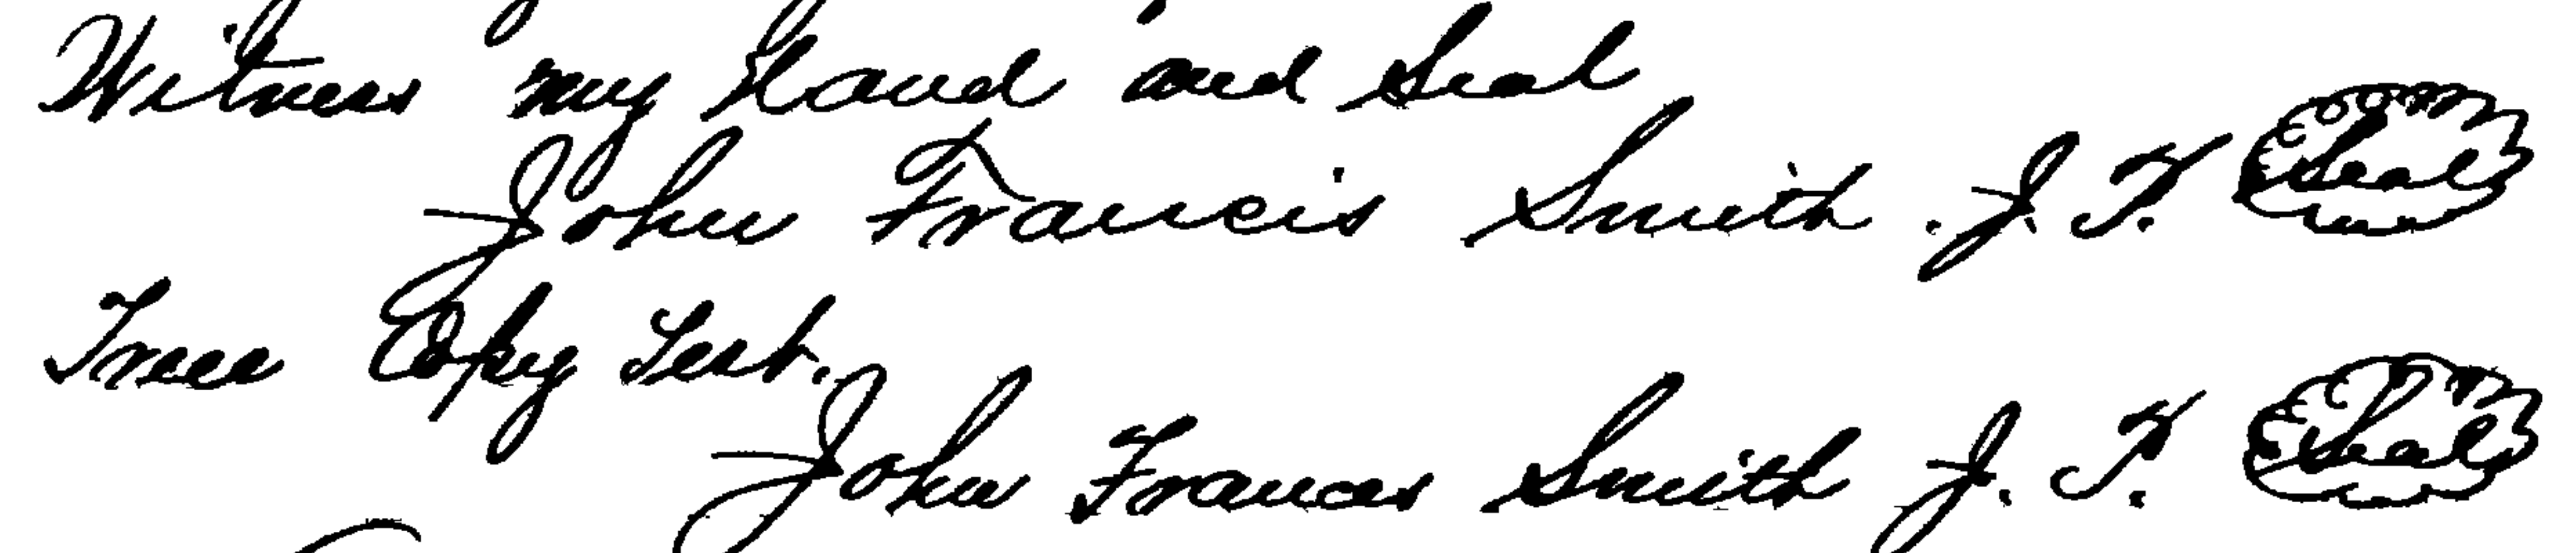 Witness my Hand and Seal
John Francis Smith. J. P. Seal
True Copy Test.
John Frances Smith J. P. Seal